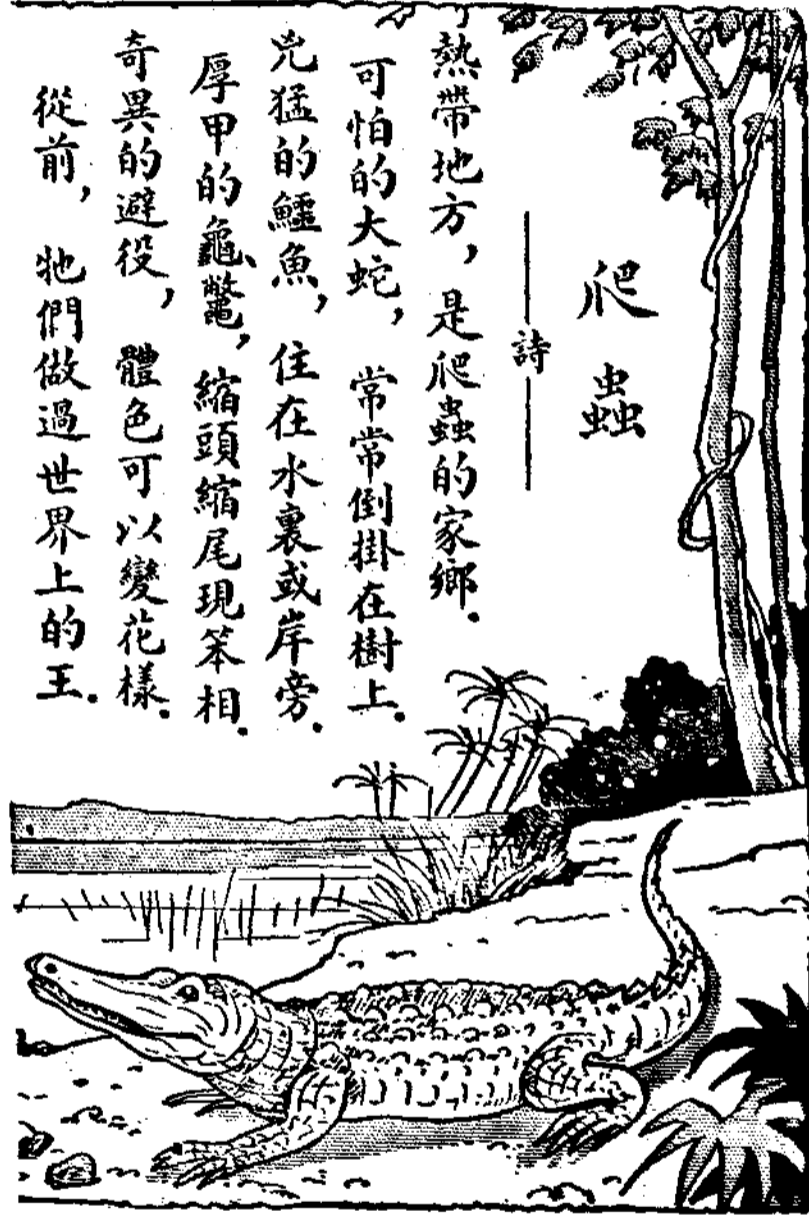 爬蟲
詩
熱帶地方，是爬蟲的家鄉．
可怕的大蛇，常常倒掛在樹上．
兇猛的鱷魚，住在水裏或岸旁．
厚甲的龜、鼈，縮頭縮尾現笨相．
奇異的避役，體色可以變花樣．
從前，牠們做過世界上的王．